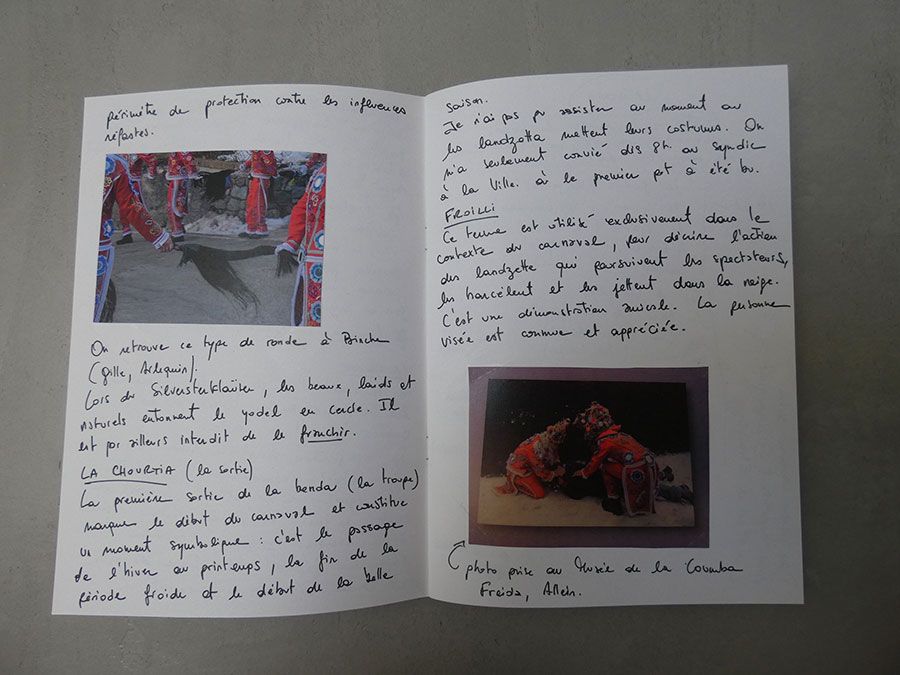 périmètre de protection contre les influences
néfastes.
On retrouve ce type de ronde à Binche
(Gille, Arlequin).
Lors du Silversterkläuse, les beaux, laids et
naturels entonnent le yodel en cercle. Il
est par ailleurs interdit de le franchir.
LA CHOURTIA (la sortie)
La première sortie de la benda (la troupe)
marque le début du carnaval et constitue
un moment symbolique : c'est le passage
de l'hiver au printemps, la fin de la
période froide et le début de la belle
saison.
Je n'ai pas pu assister au moment où
les landzetta mettent leurs costumes. On
m'a seulement convié dès 8h. au syndic
à la Ville. où le premier pot a été bu.
FROILLI
Ce terme est utilisé exclusivement dans le
contexte du carnaval, pour décrire l'action
des landzette qui poursuivent les spectateurs,
les harcèlent et les jettent dans la neige.
C'est une démonstration amicale. La personne
visée est connue et appréciée.
photo prise au Musée de la Coumba
Freida, Allein.